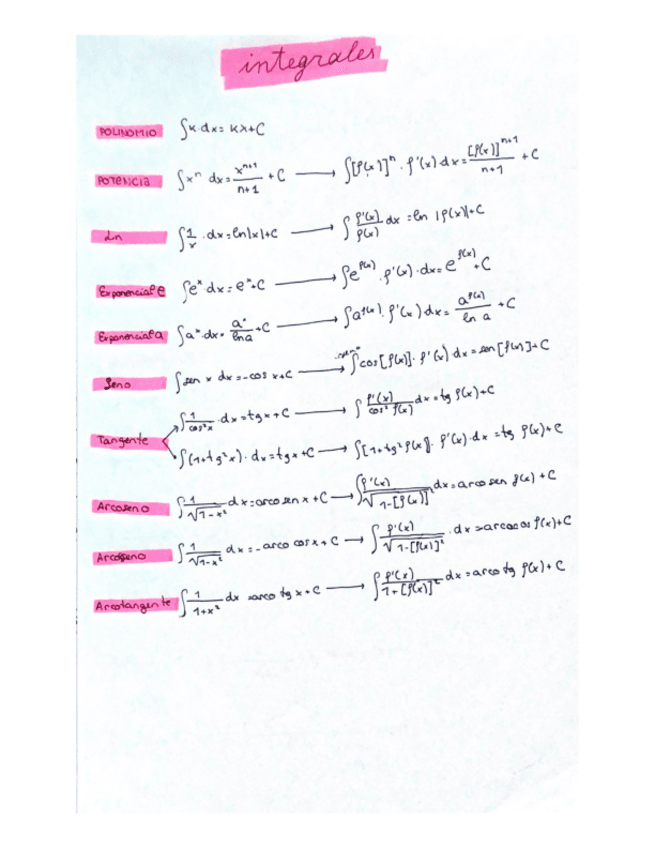 integrales
POLINOMIO ∫k·dx = kx+C
POTENCIA ∫xⁿ dx = xⁿ⁺¹/n+1 + C → ∫[f(x)]ⁿ · f'(x) dx = [f(x)]ⁿ⁺¹/n+1 + C
Ln ∫1/x · dx = ln|x|+C → ∫f'(x)/f(x) dx = ln |f(x)|+C
Exponencial e ∫eˣ dx = eˣ+C → ∫e^f(x) · f'(x) · dx = e^f(x) + C
Exponencial a ∫aˣ dx = aˣ/ln a + C → ∫a^f(x) · f'(x) dx = a^f(x)/ln a + C
Seno ∫sen x dx = -cos x+C → ∫cos[f(x)] · f'(x) · dx = sen[f(x)]+C
Tangente ∫1/cos²x · dx = tg x + C → ∫f'(x)/cos² f(x) dx = tg f(x)+C
∫(1+tg²x) · dx = tg x + C → ∫[1+tg² f(x)] · f'(x) · dx = tg f(x)+C
Arcoseno ∫1/√1-x² dx = arco sen x + C → ∫f'(x)/√1-[f(x)]² dx = arco sen f(x) + C
Arcoseno ∫1/√1-x² dx = -arco cos x + C → ∫f'(x)/√1-[f(x)]² · dx = arcocos f(x)+C
Arcotangente ∫1/1+x² dx = arco tg x + C → ∫f'(x)/1+[f(x)]² dx = arco tg f(x) + C